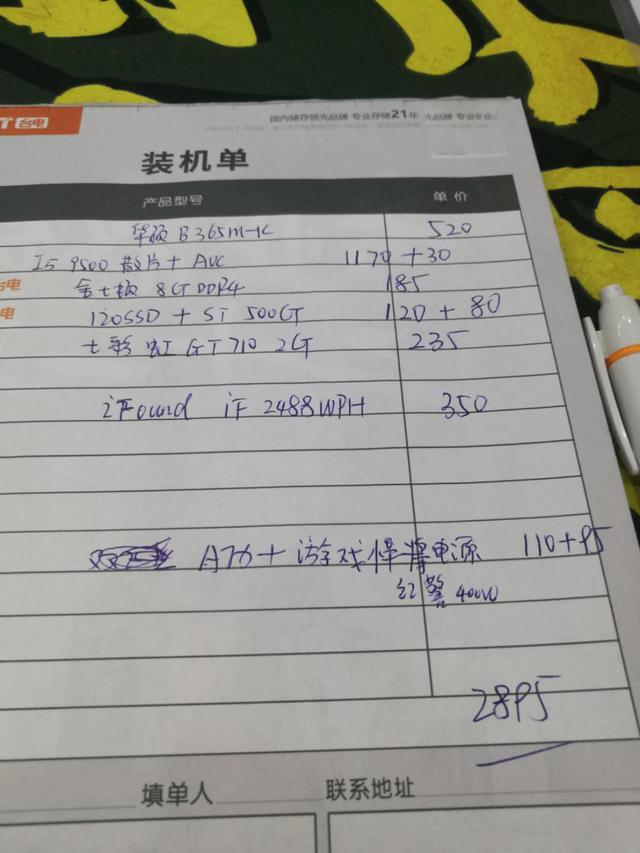 T台电
国内储存领先品牌 专业存储21年
先品牌 专业
装机单
产品型号 单价
华硕 B365M-K 520
I5 9500 散片+AVC 1170+30
台电 金士顿 8G DDR4 185
电 120SSD + ST 500G 120+80
七彩虹 GT710 2G 235
iFound iF 2488WPH 350
游戏悍将电源 110+95
红警 400W
2895
填单人 联系地址